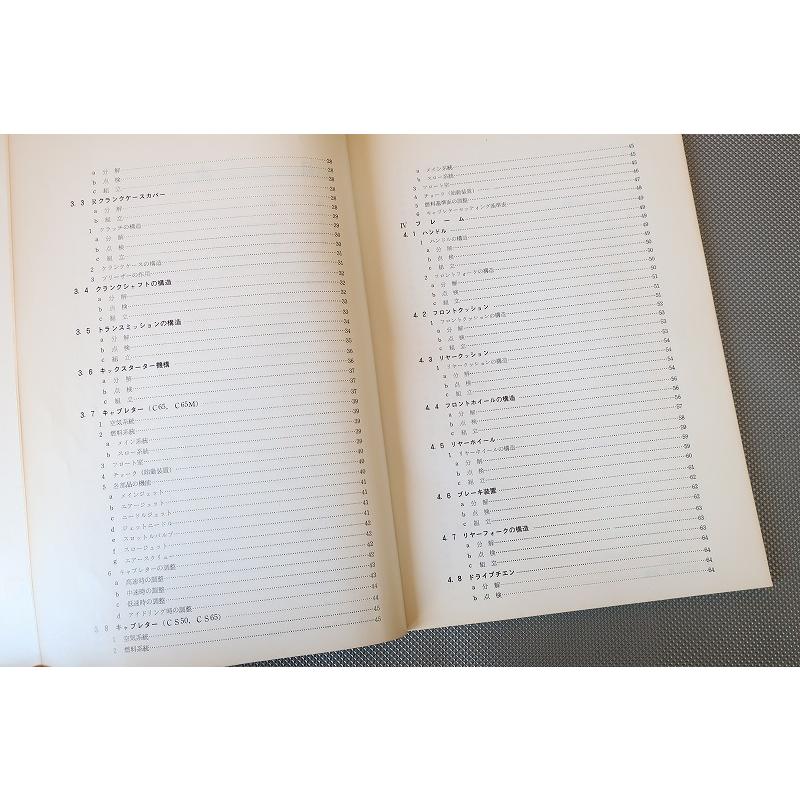 a 分 解 28
b 点 検 28
c 組 立 28
3. 3 Rクランクケースカバー 28
a 分 解 28
b 組 立 29
1 クラッチの構造 29
a 分 解 29
b 点 検 30
c 組 立 30
2 クランクケースの構造 31
3 ブリーザーの作用 32
3. 4 クランクシャフトの構造 32
a 分 解 32
b 点 検 33
c 組 立 33
3. 5 トランスミッションの構造 34
a 分 解 34
b 点 検 34
c 組 立 35
3. 6 キックスターター機構 36
a 分 解 36
b 点 検 37
c 組 立 37
3. 7 キャブレター (C65, C65M) 39
1 空気系統 39
2 燃料系統 39
a メイン系統 39
b スロー系統 39
3 フロート室 40
4 チョーク (始動装置) 40
5 各部品の機能 40
a メインジェット 41
b エアージェット 41
c ニードルジェット 41
d ジェットニードル 41
e スロットルバルブ 42
f スロージェット 42
g エアースクリュー 42
6 キャブレターの調整 43
a 高速時の調整 43
b 中速時の調整 43
c 低速時の調整 44
d アイドリング時の調整 44
3. 8 キャブレター (CS50, CS65) 45
1 空気系統 45
2 燃料系統 45
a メイン系統 45
b スロー系統 45
3 フロート室 46
4 チョーク (始動装置) 46
5 燃料基準表の調整 47
6 キャブレターセッティング基準表 48
Ⅳ フ レ ー ム 49
4. 1 ハンドル 49
1 ハンドルの構造 49
a 分 解 49
b 点 検 50
c 組 立 50
2 フロントフォークの構造 50
a 分 解 50
b 点 検 51
c 組 立 51
4. 2 フロントクッション 52
1 フロントクッションの構造 52
a 分 解 53
b 点 検 53
c 組 立 53
4. 3 リヤークッション 54
1 リヤークッションの構造 54
a 分 解 54
b 点 検 54
c 組 立 56
4. 4 フロントホイールの構造 56
a 分 解 56
b 点 検 57
c 組 立 58
4. 5 リヤーホイール 59
1 リヤーホイールの構造 59
a 分 解 59
b 点 検 60
c 組 立 60
4. 6 ブレーキ装置 61
a 分 解 62
b 点 検 62
c 組 立 62
4. 7 リヤーフォークの構造 63
a 分 解 63
b 点 検 63
c 組 立 64
4. 8 ドライブチエン 64
a 分 解 64
b 点 検 64